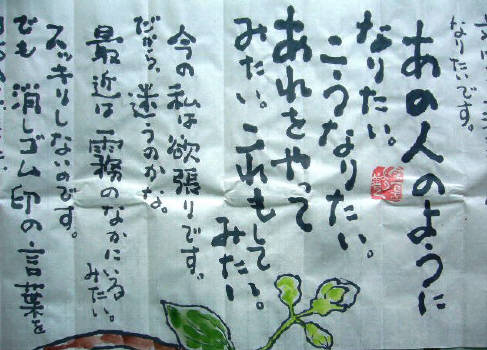 なりたいです。
あの人のように
なりたい。
こうなりたい。
あれをやって
みたい。これもして
みたい。
今の私は欲張りです。
だから、迷うのかな。
最近は霧のなかにいる
みたい。
スッキリしないのです。
でも 消しゴム印の言葉を